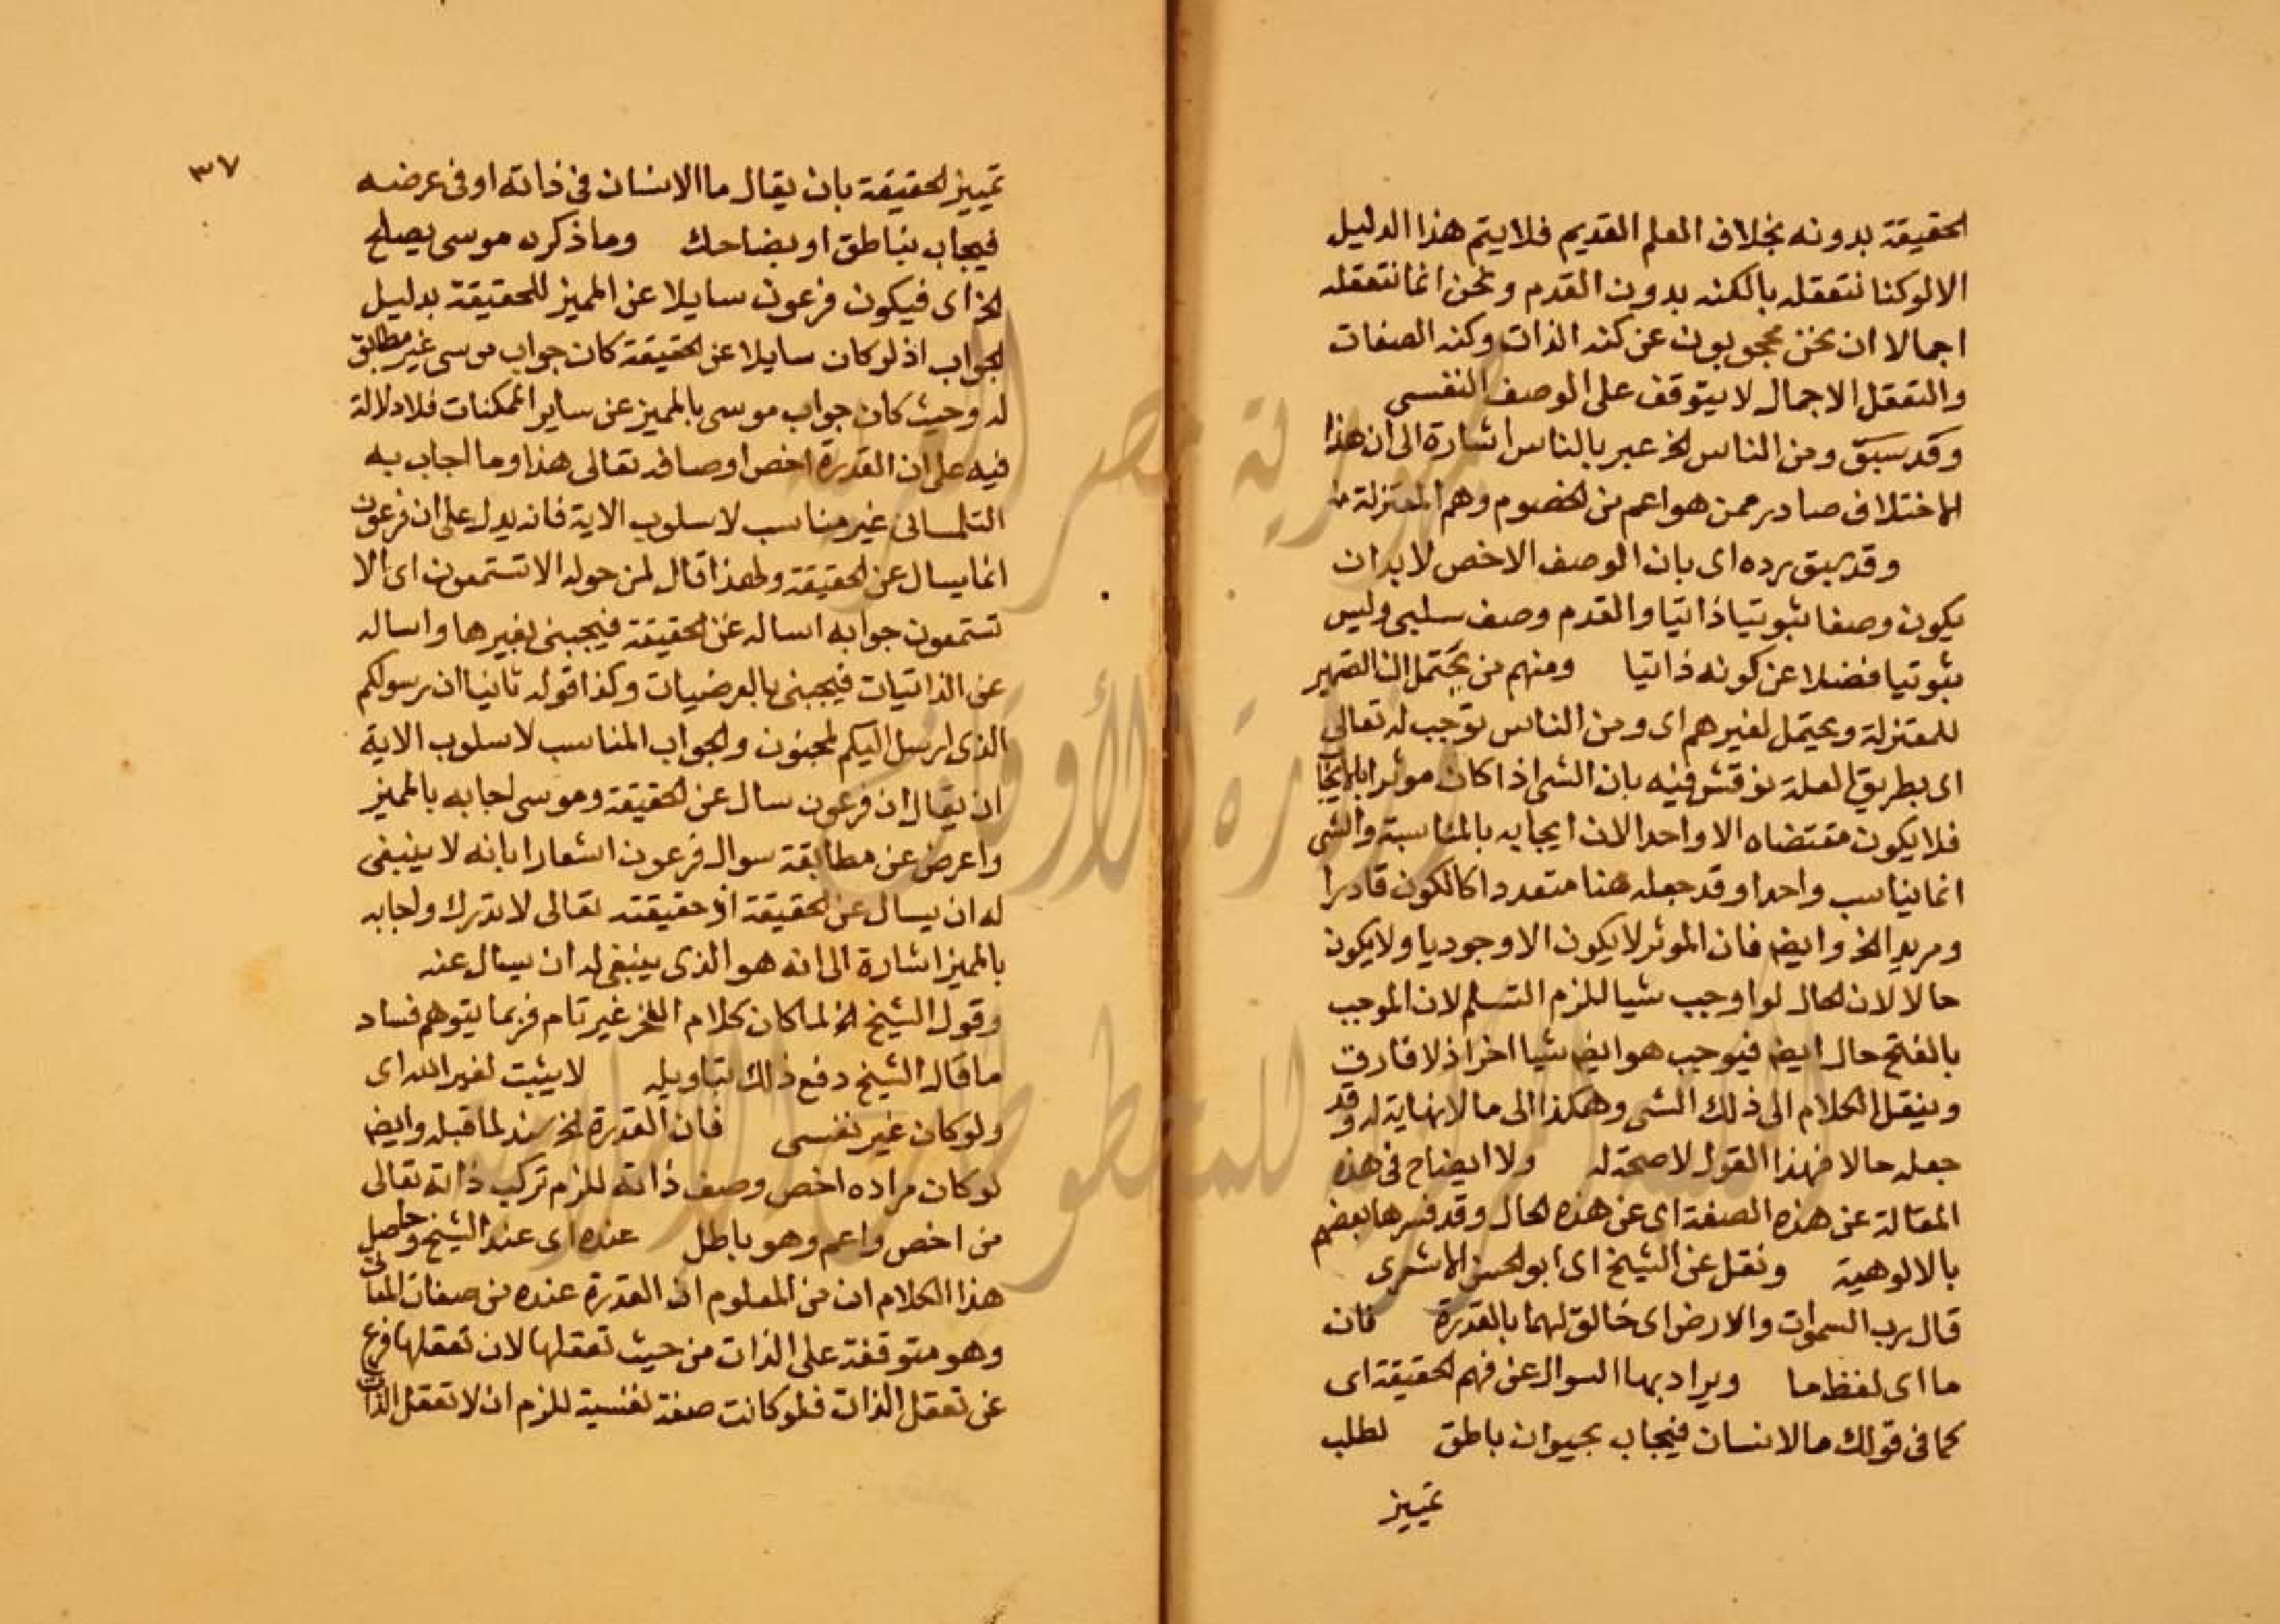 الحقيقة بدونه بخلاف العلم القديم فلا يتم هذا الدليل
الا لو كنا نتعقله بالكنه بدون القدم ونحن انما نتعقله
اجمالا ان نحن محجوبون عن كنه الذات وكنه الصفات
والتعقل الاجمال لا يتوقف على الوصف النفسى
وقد سبق ومن الناس الخ عبر بالناس اشارة الى ان هذا
الاختلاف صادر ممن هو اعم من الخصوم وهم المعتزلة
وقد سبق برده اى بان الوصف الاخص لا بد ان
يكون وصفا ثبوتيا ذاتيا والقدم وصف سلبى وليس
ثبوتيا فضلا عن كونه ذاتيا ومنهم من يحتمل ان الضمير
للمعتزلة ويحتمل لغيرهم اى ومن الناس توجب له تعالى
اى بطريق العلة نوقش فيه بان الشى اذا كان موثرا بالايجاب
فلا يكون مقتضاه الا واحدا لان ايجابه بالمناسبة والشى
انما يناسب واحدا وقد جعله هنا متعددا كالكون قادرا
ومريدا الخ وايض فان الموثر لا يكون الا وجوديا ولا يكون
حالا لان الحال لو اوجب شيا للزم التسلم لان الموجب
بالفتح حال ايض فيوجب هو ايض شيا اخر اذ لا فارق
وينقل الكلام الى ذلك الشى وهكذا الى ما لا نهاية له وقد
جعله حالا فهذا القول لا صحة له ولا ايضاح فى هذه
المقالة عن هذه الصفة اى عن هذه الحال وقد فسرها بعضهم
بالالوهية ونقل عن الشيخ اى ابو الحسن الاشعرى
قال رب السموات والارض اى خالق لهما بالقدرة فان
ما اى لفظ ما ويراد بها السوال عن فهم الحقيقة اى
كما فى قولك ما الانسان فيجاب بحيوان باطق لطلب
تمييز
٣٧
تمييز الحقيقة بان يقال ما الانسان فى ذاته او فى عرضه
فيجاب بناطق او بضاحك وما ذكره موسى يصلح
الخ اى فيكون فرعون سايلا عن المميز للحقيقة بدليل
الجواب اذ لو كان سايلا عن الحقيقة كان جواب موسى غير مطابق
له وحيث كان جواب موسى بالمميز عن ساير الممكنات فلا دلالة
فيه على ان القدرة اخص اوصافه تعالى هذا وما اجاب به
التلمسانى غير مناسب لاسلوب الاية فانه يدل على ان فرعون
انما يسال عن الحقيقة ولهذا قال لمن حوله الا تستمعون اى الا
تستمعون جوابه اساله عن الحقيقة فيجيبنى بغيرها واساله
عن الذاتيات فيجيبنى بالعرضيات وكذا قوله ثانيا ان رسولكم
الذى ارسل اليكم لمجنون والجواب المناسب لاسلوب الاية
ان يقال ان فرعون سال عن الحقيقة وموسى اجابه بالمميز
واعرض عن مطابقة سوال فرعون اشعارا بانه لا ينبغى
له ان يسال عن الحقيقة اذ حقيقته تعالى لا تدرك واجابه
بالمميز اشارة الى انه هو الذى ينبغى له ان يسال عنه
وقول الشيخ الخ لما كان كلام الفخر غير تام فربما يتوهم فساد
ما قاله الشيخ دفع ذلك بتاويله لا يثبت لغير الله اى
ولو كان غير نفسى فان القدرة الخ سند لما قبله وايض
لو كان مراده اخص وصف ذاته للزم تركب ذاته تعالى
من اخص واعم وهو باطل عنده اى عند الشيخ وحاصل
هذا الكلام ان من المعلوم ان القدرة عنده من صفات المعانى
وهو متوقفة على الذات من حيث تعقلها لان تعقلها فرع
عن تعقل الذات فلو كانت صفة نفسية للزم ان لا تعقل الذات
جمهورية مصر العربية
وزارة الأوقاف
المكتبة المركزية للمخطوطات الإسلامية